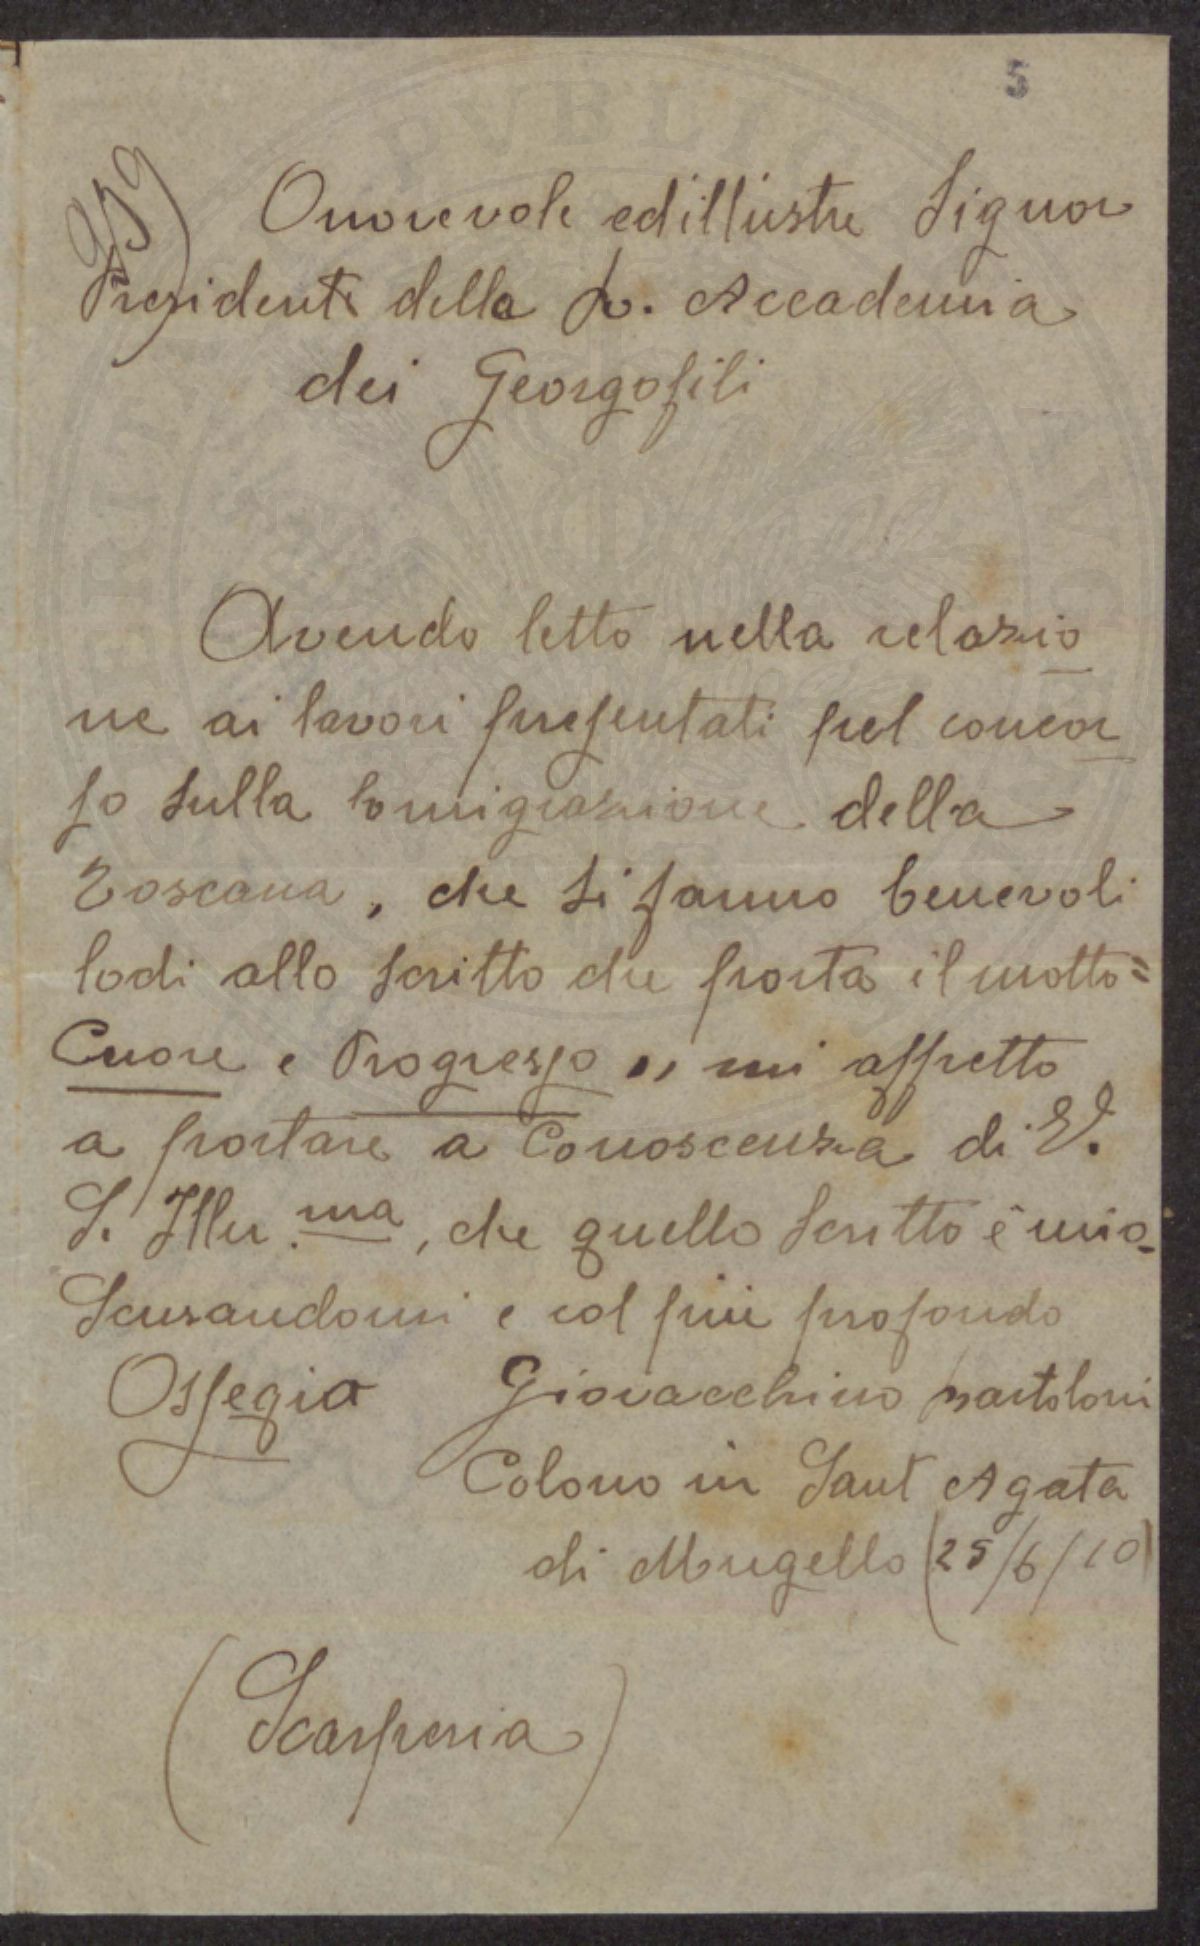 5
939)
Onorevole ed illustre Signor
Presidente della R. Accademia
dei Georgofili
Avendo letto nella relazio
ne ai lavori presentati pel concor
so sulla
della
Toscana, che si fanno benevoli
lodi allo scritto che porta il motto =
Cuore e Progresso ,, mi affretto
a portare a Conoscenza di V.
S. Illu.ma, che quello scritto è mio.
Scusandomi e col più profondo
Ossequio Giovacchino Bartoloni
Colono in Sant Agata
di Mugello (25/6/10)
(Scarperia)